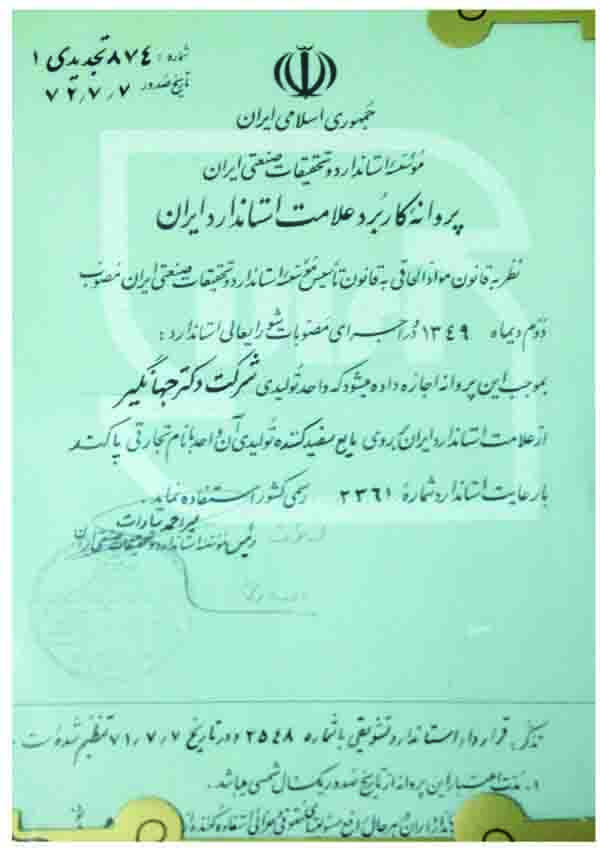 شماره : ۸۷۴ تجدیدی ۱
تاریخ صدور ۷۲٫۷٫۷
جمهوری اسلامی ایران
مؤسسه استاندارد و تحقیقات صنعتی ایران
پروانه کاربرد علامت استاندارد ایران
نظر به قانون مواد الحاقی به قانون تأسیس مؤسسه استاندارد و تحقیقات صنعتی ایران مصوب
دوم دیماه ۱۳۴۹ در اجرای مصوبات شورایعالی استاندارد :
بموجب این پروانه اجازه داده میشود که واحد تولیدی شرکت دکتر جهانگیر
از علامت استاندارد ایران بر روی مایع سفیدکننده تولیدی آن واحد با نام تجارتی پاکتد
با رعایت استاندارد شماره ۲۳۶۱ رسمی کشور استفاده نماید .
رئیس مؤسسه استاندارد و تحقیقات صنعتی ایران
تذکر : قرارداد استاندارد تشویقی با شماره ۲۵۴۸ و در تاریخ ۷۱٫۷٫۷ تنظیم شده است
۱ـ مدت اعتبار این پروانه از تاریخ صدور یکسال شمسی میباشد .